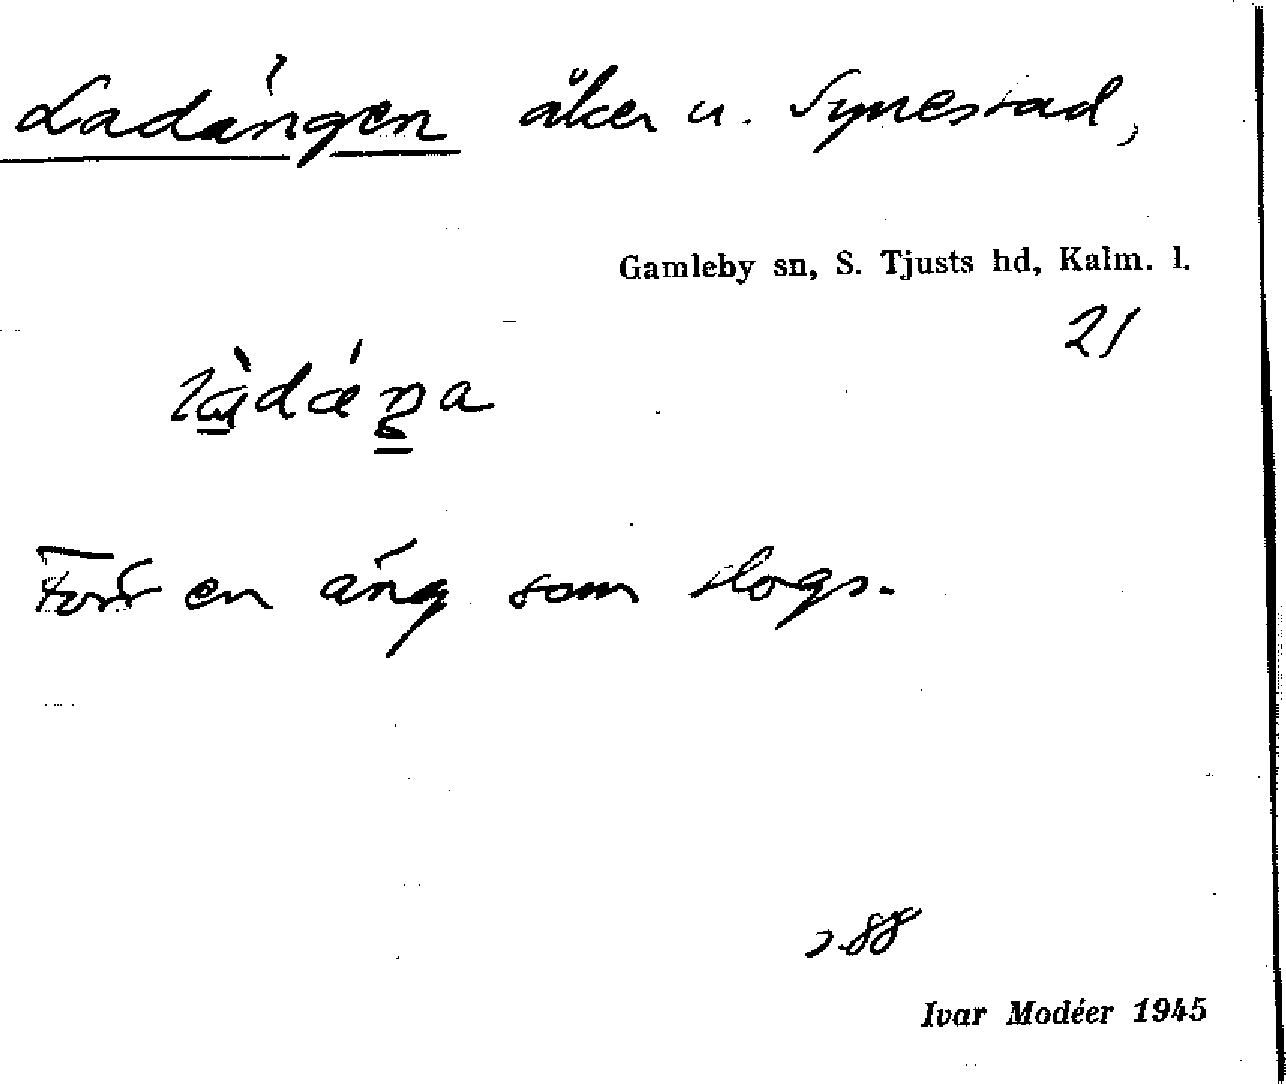 Ladängen åker u. Synestad,
Gamleby sn, S. Tjusts hd, Kalm. l.
21
làdǽŋa
Förr en äng som slogs.
288
Ivar Modéer 1945